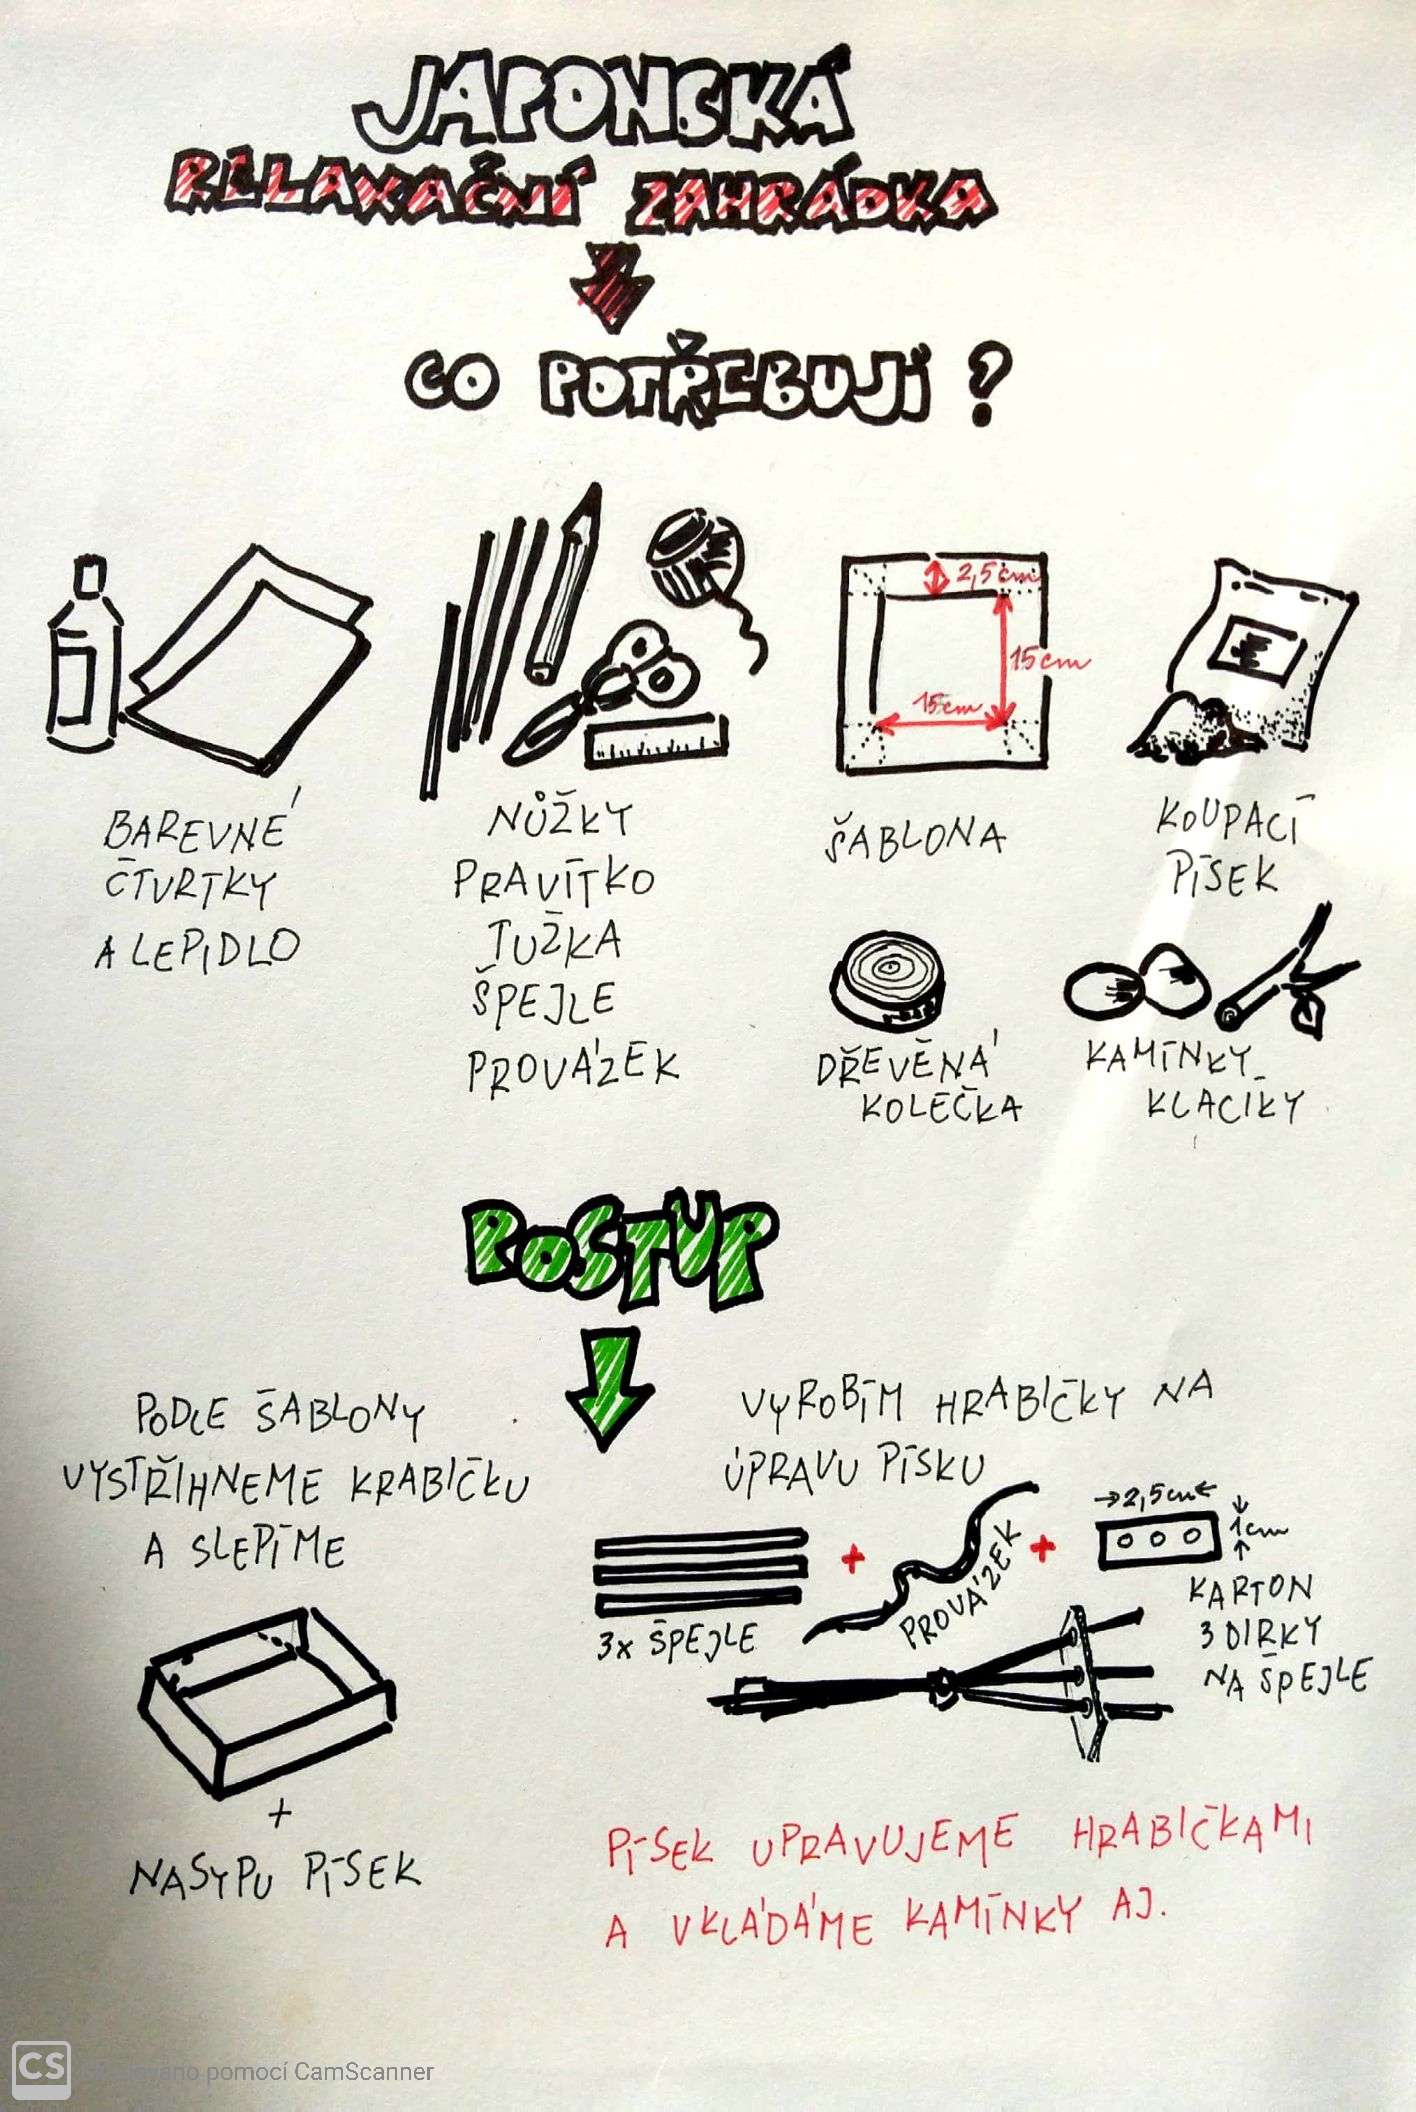 JAPONSKÁ
RELAXAČNÍ ZAHRÁDKA
CO POTŘEBUJI ?
2,5 cm
15 cm
15 cm
BAREVNÉ
ČTVRTKY
A LEPIDLO
NŮŽKY
PRAVÍTKO
TUŽKA
ŠPEJLE
PROVÁZEK
ŠABLONA
KOUPACÍ
PÍSEK
DŘEVĚNÁ
KOLEČKA
KAMÍNKY
KLACÍKY
POSTUP
PODLE ŠABLONY
VYSTŘIHNEME KRABIČKU
A SLEPÍME
+
NASYPU PÍSEK
VYROBÍM HRABIČKY NA
ÚPRAVU PÍSKU
3x ŠPEJLE
+
PROVÁZEK
+
2,5 cm
1 cm
KARTON
3 DIRKY
NA ŠPEJLE
PÍSEK UPRAVUJEME HRABIČKAMI
A VKLÁDÁME KAMÍNKY AJ.
CS
pomocí CamScanner